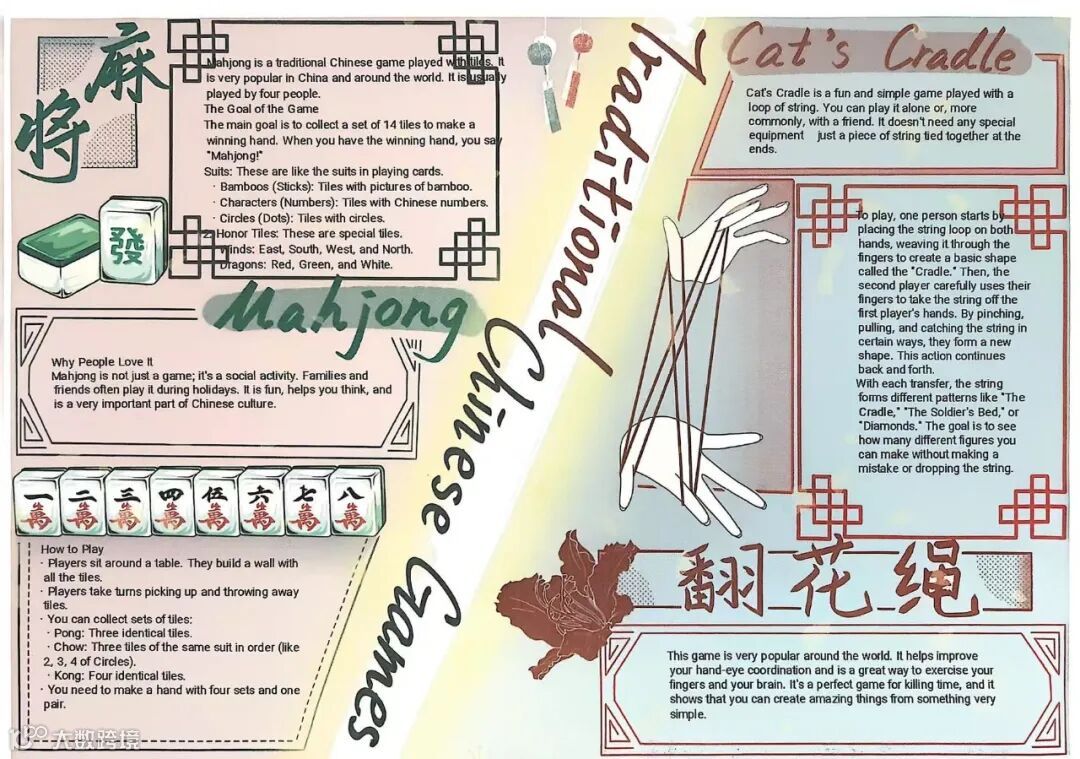 麻将
Mahjong is a traditional Chinese game played with tiles. It
is very popular in China and around the world. It is usually
played by four people.
The Goal of the Game
The main goal is to collect a set of 14 tiles to make a
winning hand. When you have the winning hand, you say
"Mahjong!"
Suits: These are like the suits in playing cards.
· Bamboos (Sticks): Tiles with pictures of bamboo.
· Characters (Numbers): Tiles with Chinese numbers.
· Circles (Dots): Tiles with circles.
2. Honor Tiles: These are special tiles.
Winds: East, South, West, and North.
Dragons: Red, Green, and White.
發
Mahjong
Why People Love It
Mahjong is not just a game; it's a social activity. Families and
friends often play it during holidays. It is fun, helps you think, and
is a very important part of Chinese culture.
一萬 二萬 三萬 四萬 伍萬 六萬 七萬 八萬
How to Play
· Players sit around a table. They build a wall with
all the tiles.
· Players take turns picking up and throwing away
tiles.
· You can collect sets of tiles:
· Pong: Three identical tiles.
· Chow: Three tiles of the same suit in order (like
2, 3, 4 of Circles).
· Kong: Four identical tiles.
· You need to make a hand with four sets and one
pair.
大数跨境
Traditional Chinese Games
Cat's Cradle
Cat's Cradle is a fun and simple game played with a
loop of string. You can play it alone or, more
commonly, with a friend. It doesn't need any special
equipment just a piece of string tied together at the
ends.
To play, one person starts by
placing the string loop on both
hands, weaving it through the
fingers to create a basic shape
called the "Cradle." Then, the
second player carefully uses their
fingers to take the string off the
first player's hands. By pinching,
pulling, and catching the string in
certain ways, they form a new
shape. This action continues
back and forth.
With each transfer, the string
forms different patterns like "The
Cradle," "The Soldier's Bed," or
"Diamonds." The goal is to see
how many different figures you
can make without making a
mistake or dropping the string.
翻花绳
This game is very popular around the world. It helps improve
your hand-eye coordination and is a great way to exercise your
fingers and your brain. It's a perfect game for killing time, and it
shows that you can create amazing things from something very
simple.